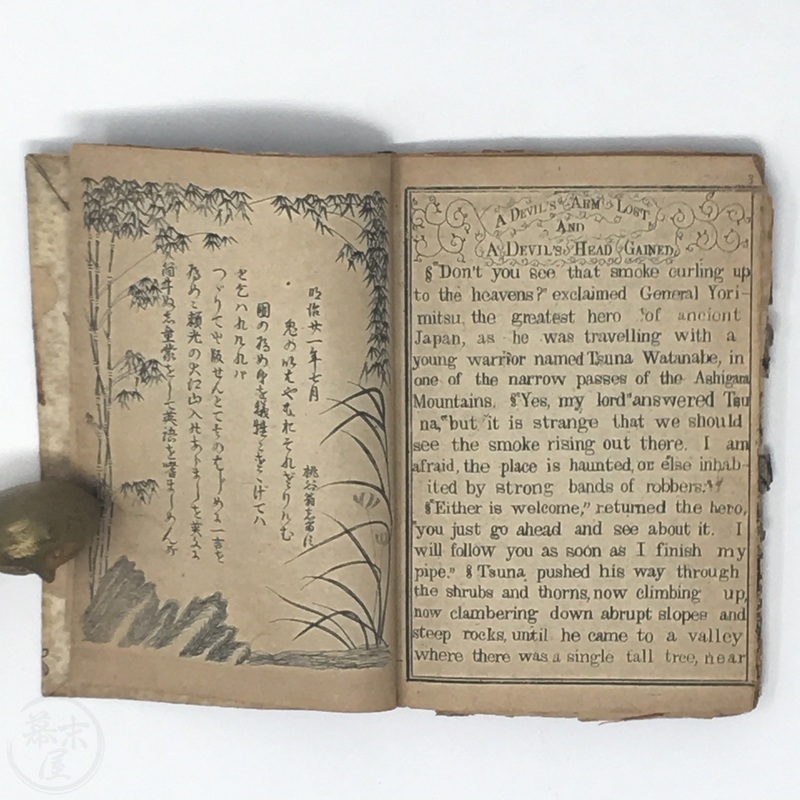 童蒙をして英語を嗜ましめんが
為めニ頼光の大江山入のあらましを英文に
つゞりて出版せんとてそのはじめに一言を
國の為め身を犠牲とさゝげてハ
明治廿一年七月
A DEVIL'S ARM LOST
AND
A DEVIL'S HEAD GAINED.
§"Don't you see that smoke curling up
to the heavens?" exclaimed General Yori-
mitsu, the greatest hero of ancient
Japan, as he was travelling with a
young warrior named Tsuna Watanabe, in
one of the narrow passes of the Ashigara
Mountains. §"Yes, my lord" answered Tsu
na, "but it is strange that we should
see the smoke rising out there. I am
afraid, the place is haunted, or else inhab-
ited by strong bands of robbers."
§"Either is welcome," returned the hero,
"you just go ahead and see about it. I
will follow you as soon as I finish my
pipe." § Tsuna pushed his way through
the shrubs and thorns, now climbing up,
now clambering down abrupt slopes and
steep rocks, until he came to a valley
where there was a single tall tree, near
幕末屋